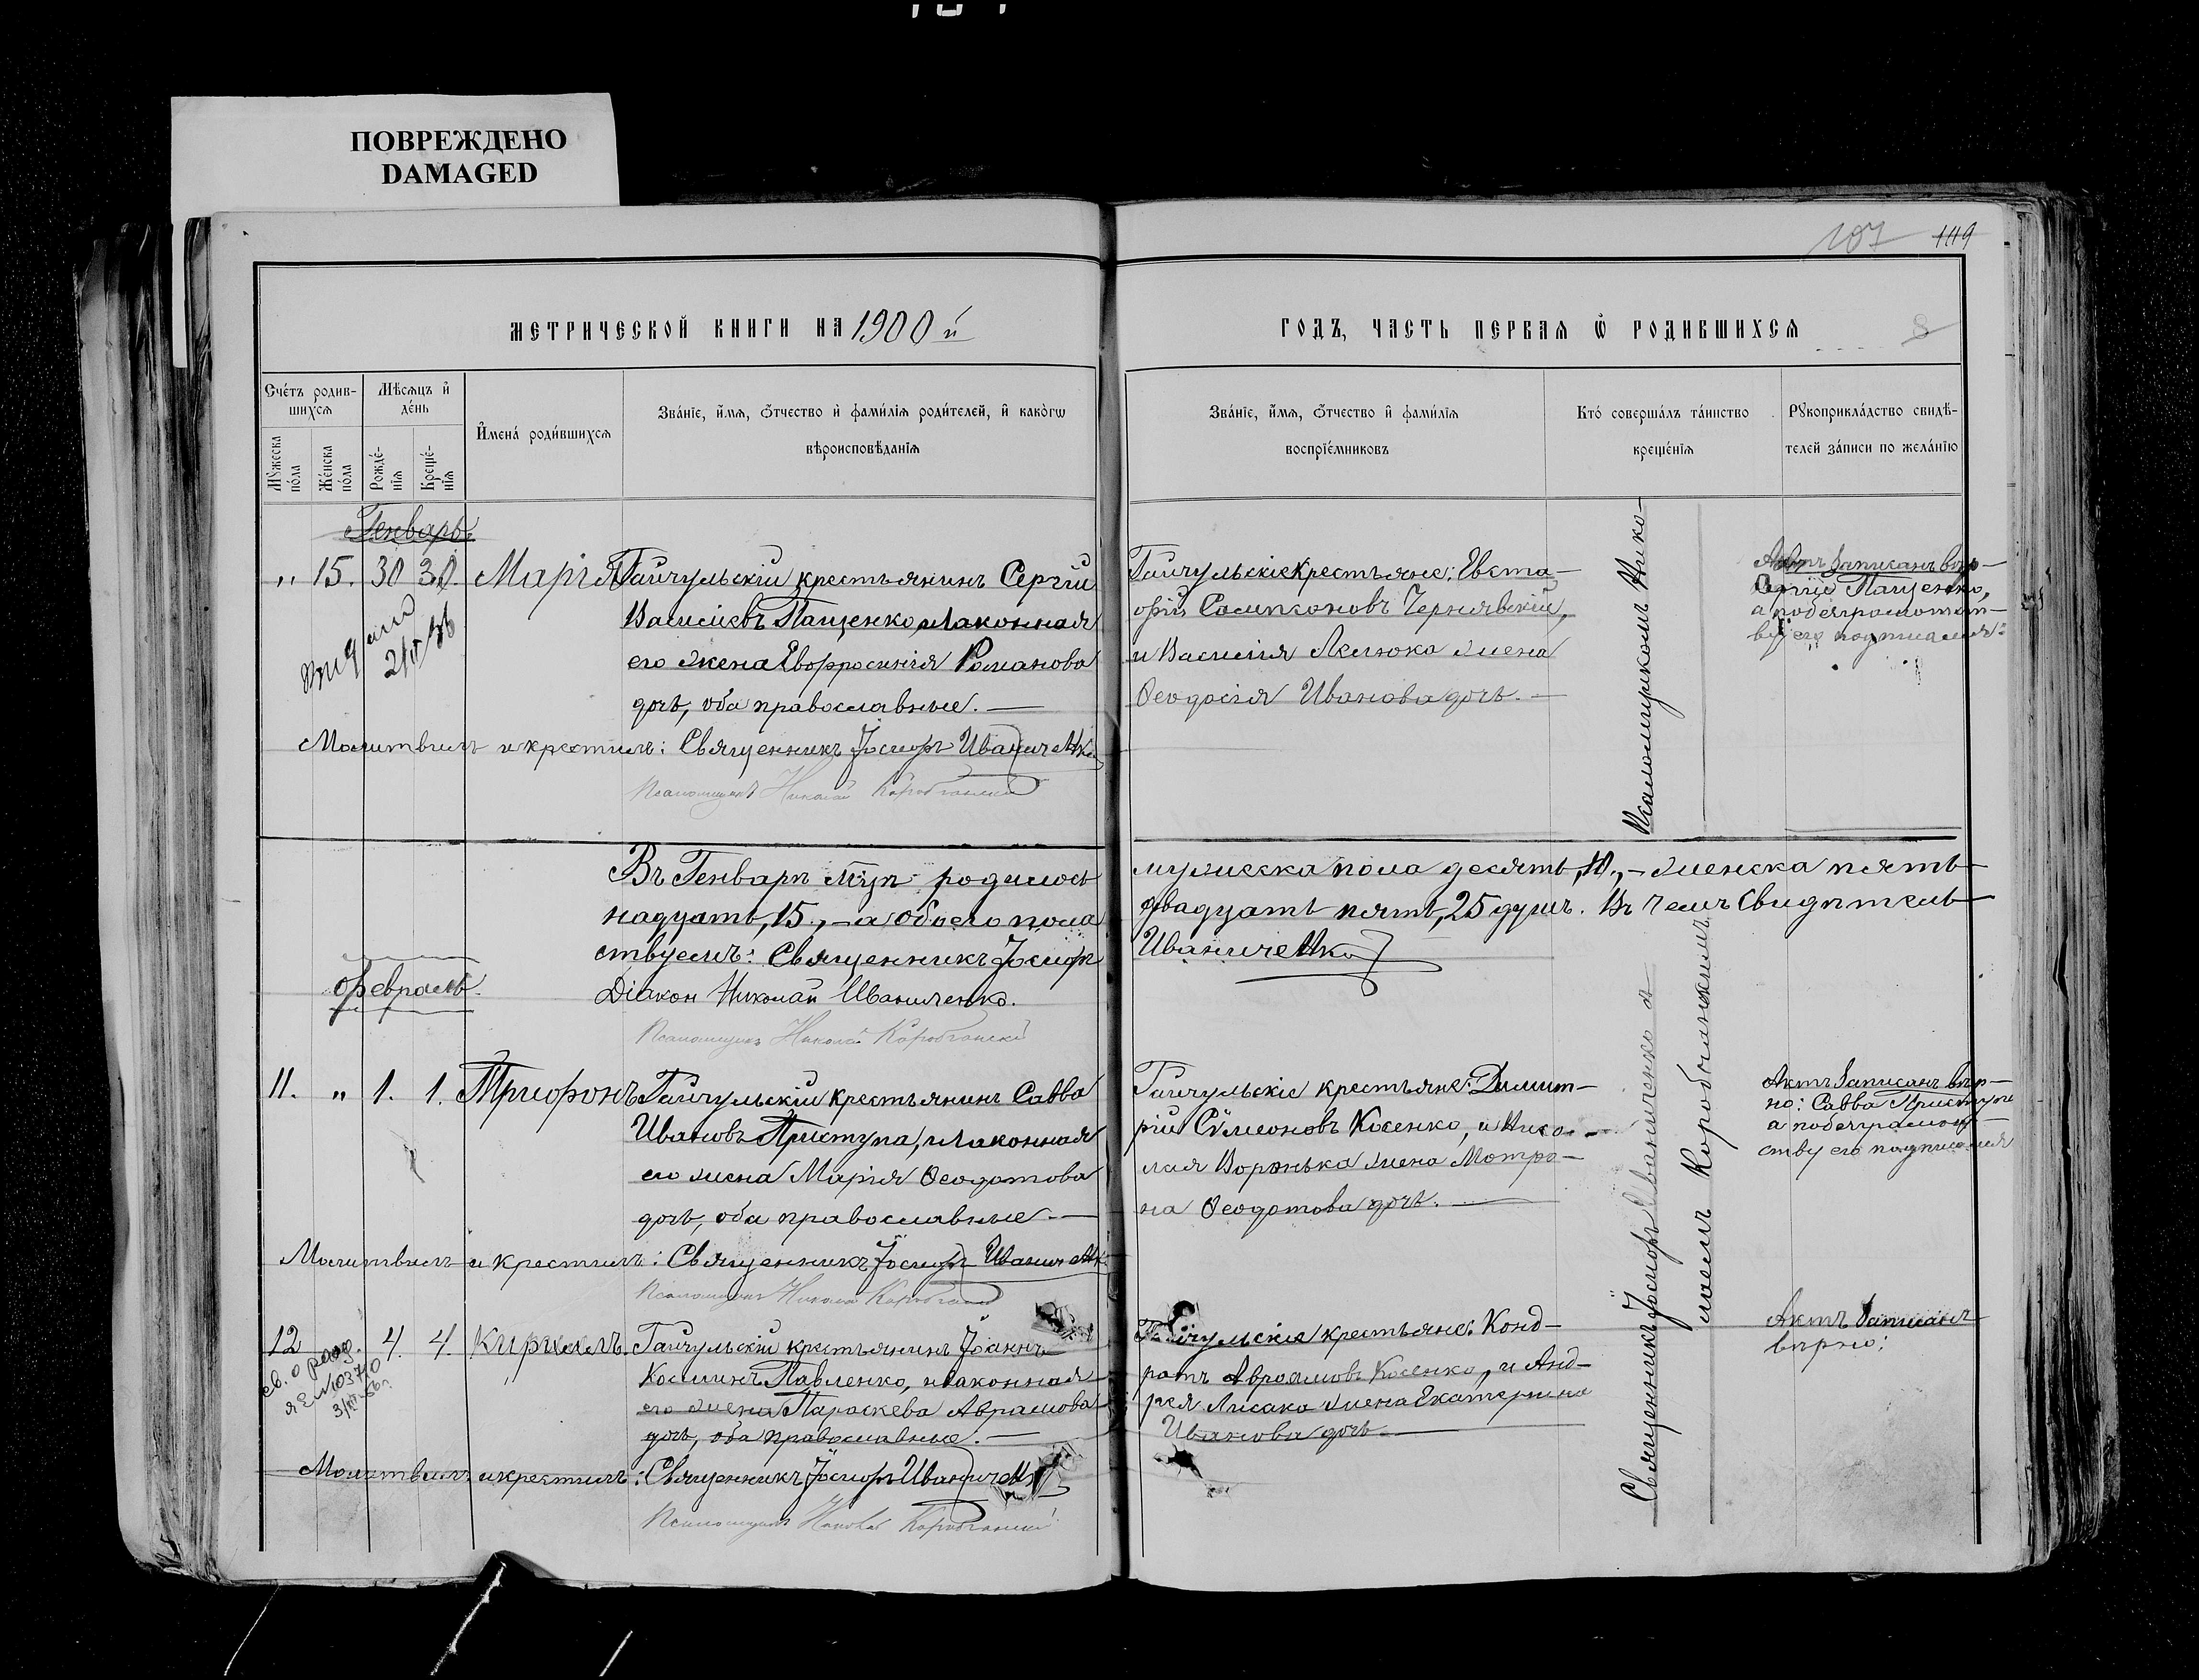 ПОВРЕЖДЕНО
DAMAGED
107 119
МЕТРИЧЕСКОЙ КНИГИ НА 1900 й
ГОДЪ, ЧАСТЬ ПЕРВАЯ Ѡ РОДИВШИХСЯ
8
Счéтъ родив-
шихся
Мѣсяцъ и҆
дéнь
Мꙋ́жеска
пóла
Жéнска
пóла
Рождé-
нїя
Крещé-
нїя
И҆мена́ роди́вшихся
Зва́нїе, и҆́мя, Ѻ҆́тчество и҆ фами́лїя роди́телей, и҆ како́гѡ
вѣроисповѣ́данїя
Зва́нїе, и҆́мя, Ѻ҆́тчество и҆ фами́лїя
воспрїе́мниковъ
Кто́ соверша́лъ та́инство
креще́нїя
Рꙋкоприкла́дство свидѣ́-
телей за́писи по жела́нїю
Генварь
„ 15. 30 30. Марія
Гайчульскій крестьянинъ Сергій
Василіевъ Пащенко, и законная
его жена Евфросинія Романова
дочь, оба православные. —
Молитвилъ и крестилъ: Священникъ Іосифъ Иваниченко
Псаломщикъ Николай Коробчанскій
Гайчульскіе крестьяне: Евста-
фій Сампсоновъ Чернявскій,
и Василія Лелюка жена
Ѳеодосія Иванова дочь. —
Актъ записанъ вѣр-
Сергій Пащенко,
а по безграмотст-
ву его подписался:
Въ Генварѣ м-цѣ родилось
мужеска пола десять, 10, — женска пять-
надцать, 15, — а обоего пола
двадцать пять, 25 душъ. Въ чемъ свидѣтель-
ствуемъ: Священникъ Іосифъ
Иваниченко
Діаконъ Николай Иваниченко.
Псаломщикъ Николай Коробчанскій
Февраль.
11. „ 1. 1. Трифонъ
Гайчульскій крестьянинъ Савва
Ивановъ Приступа, и законная
его жена Марія Ѳеодотова
дочь, оба православные. —
Молитвилъ и крестилъ: Священникъ Іосифъ Иваниченко
Псаломщикъ Николай Коробчанскій
Гайчульскіе крестьяне: Димит-
рій Сѵмеоновъ Косенко, и Нико-
лая Воронька жена Мотро-
на Ѳеодотова дочь. —
Актъ записанъ вѣр-
но: Савва Приступа
а по безграмот-
ству его подписался
12 4. 4. Кириллъ.
св. о рожд.
Гайчульскій крестьянинъ Іоаннъ
Косминъ Павленко, и законная
его жена Параскева Аврамова
дочь, оба православные. —
Молитвилъ и крестилъ: Священникъ Іосифъ Иваниченко
Псаломщикъ Николай Коробчанскій
Гайчульскіе крестьяне: Конд-
ратъ Авраамовъ Косенко, и Анд-
рея Лисака жена Екатерина
Иванова дочь. —
Актъ записанъ
вѣрно:
Священникъ Іосифъ Иваниченко съ
Псаломщикомъ Нико-
лаемъ Коробчанскимъ